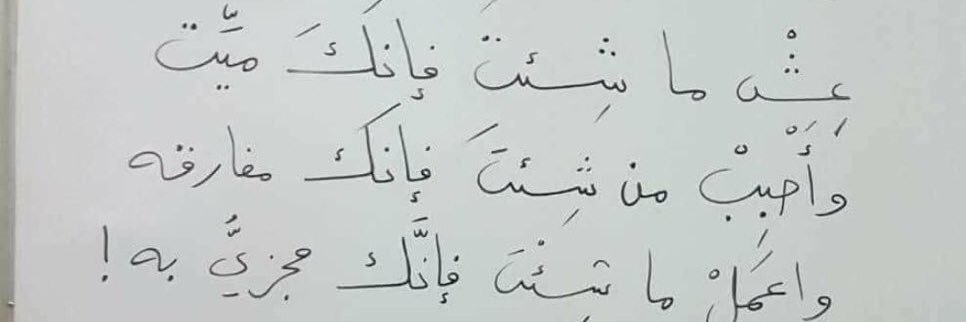 عِشْ ما شِئتَ فإنكَ ميّت
وَأَحْبِبْ من شِئتَ فإنكَ مفارقه
واعمَلْ ما شِئْتَ فإنَّك مجزيٌّ به !